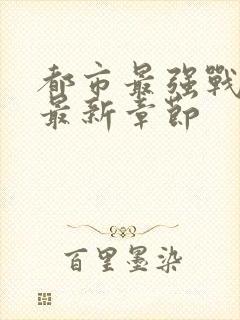 都市最强戰
最新章節
百里墨染